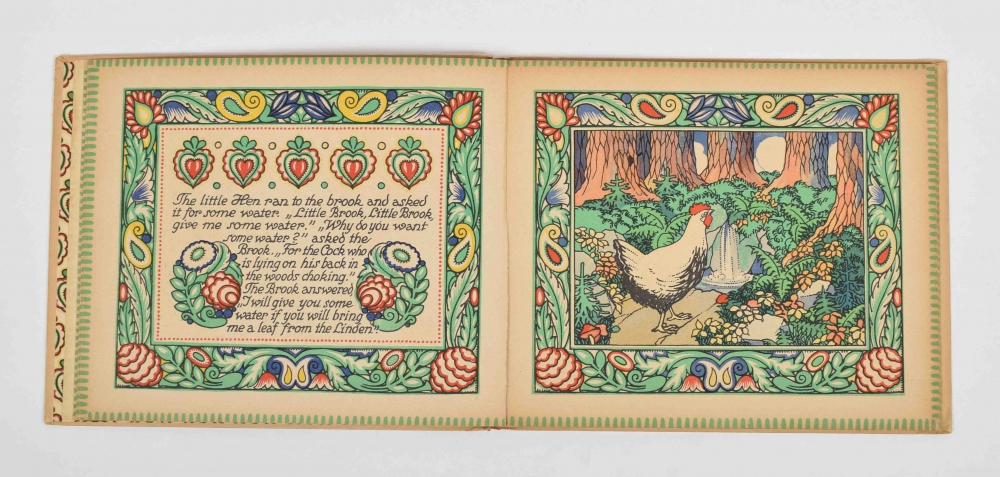 The little Hen ran to the brook and asked
it for some water. „Little Brook, Little Brook
give me some water." „Why do you want
some water?" asked the
Brook. „For the Cock who
is lying on his back in
the woods choking."
The Brook answered
„I will give you some
water if you will bring
me a leaf from the Linden."